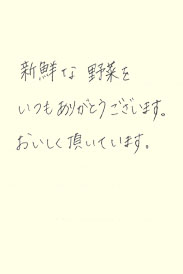 新鮮な 野菜を
いつもありがとうございます。
おいしく頂いています。